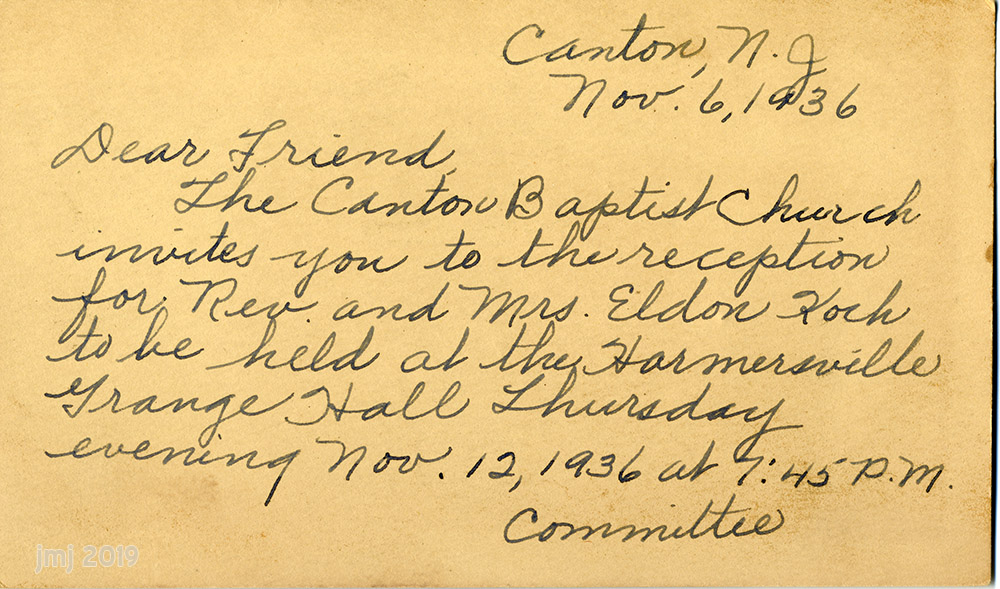 Canton, N.J
Nov. 6, 1936
Dear Friend,
The Canton Baptist Church
invites you to the reception
for Rev. and Mrs. Eldon Koch
to be held at the Harmersville
Grange Hall Thursday
evening Nov. 12, 1936 at 7:45 P.M.
Committee
jmj 2019